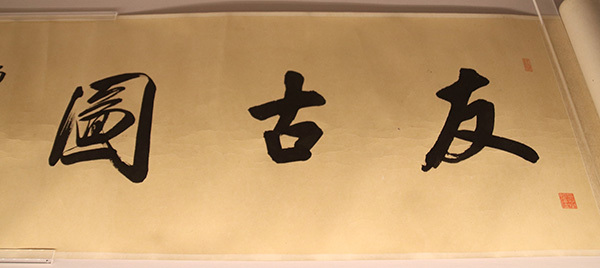 友古圖